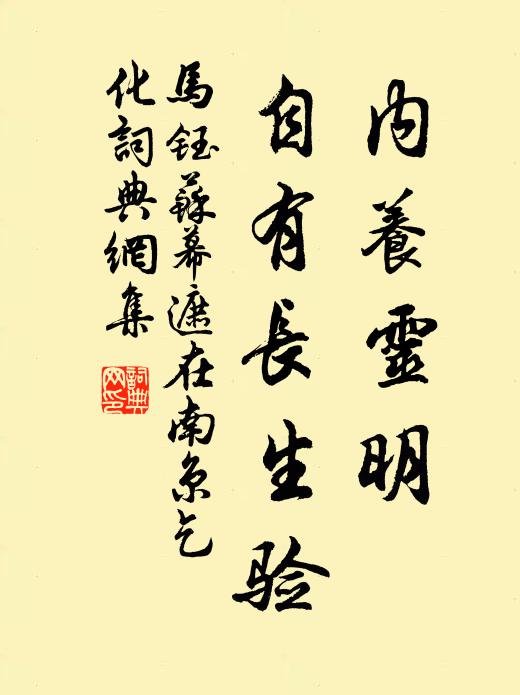 内養靈明
自有長生验
馬鈺蘇幕遮在南京乞
化詞典網集
詞典
网印